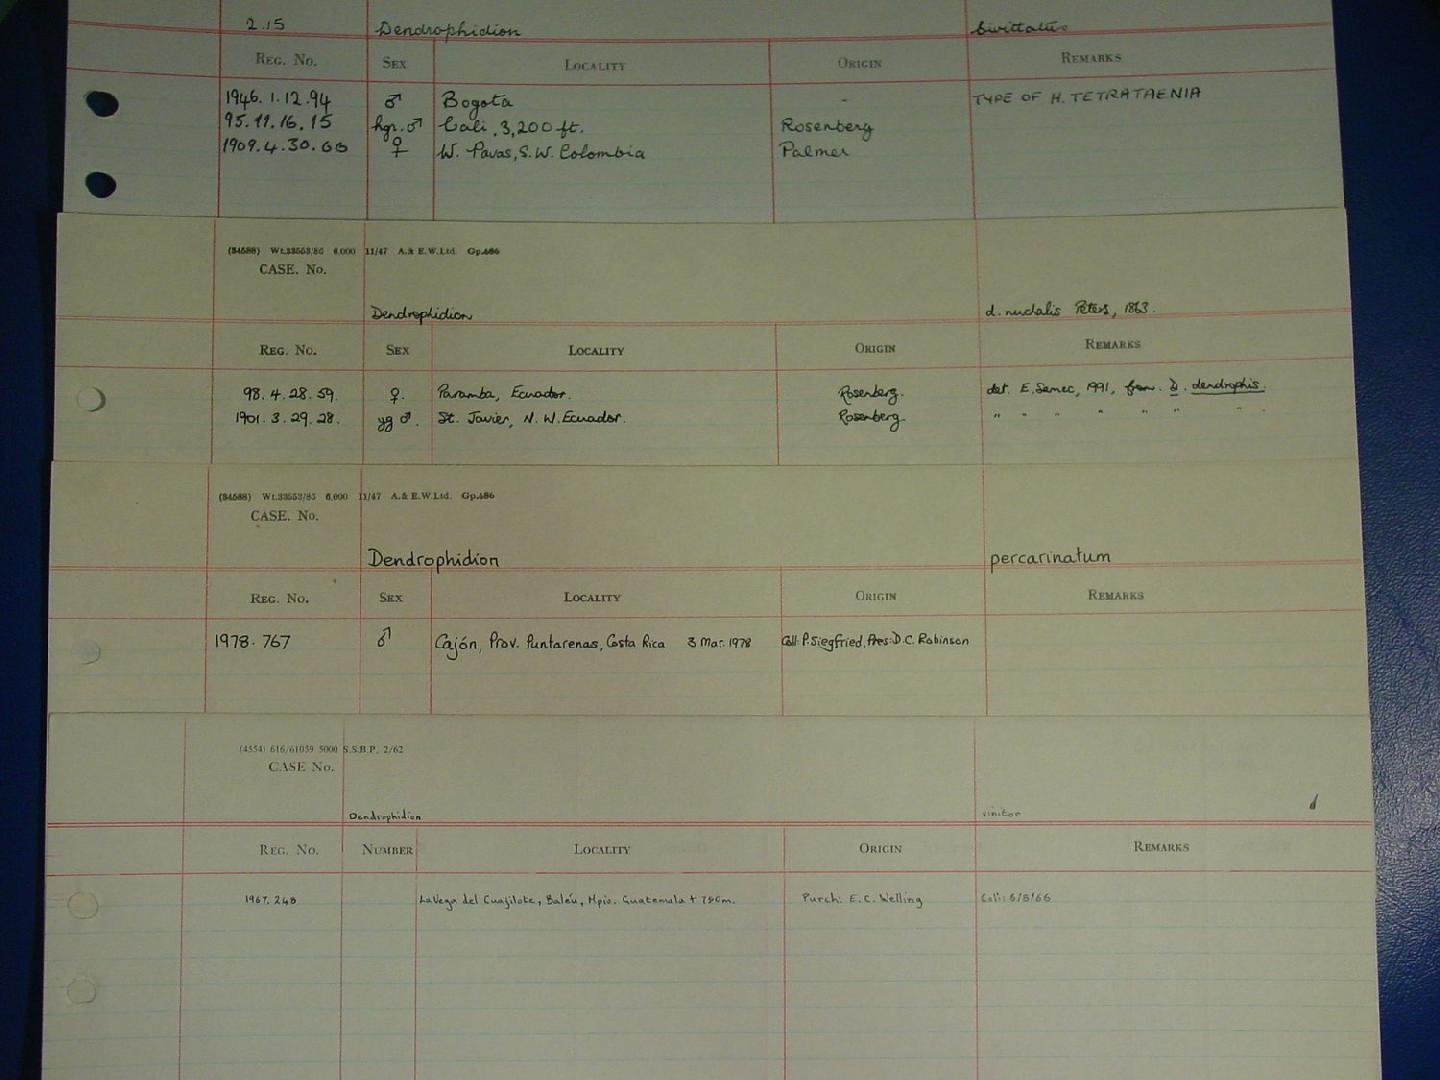 2.15 Dendrophidion bivittatus
REG. No. SEX LOCALITY ORIGIN REMARKS
1946.1.12.94 ♂ Bogota - TYPE OF H. TETRATAENIA
95.11.16.15 hgr. ♂ Cali, 3,200 ft. Rosenberg
1909.4.30.60 ♀ W. Pavas, S.W. Colombia Palmer
(34588) Wt.33553/85 6,000 11/47 A. & E.W.Ltd. Gp.686
CASE. No.
Dendrophidion d. nuchalis Peters, 1863.
REG. No. SEX LOCALITY ORIGIN REMARKS
98.4.28.59. ♀. Paramba, Ecuador. Rosenberg. det. E. 1991, from. D. dendrophis.
1901.3.29.28. yg ♂. St. Javier, N.W. Ecuador. Rosenberg. " " " " " " " "
(34588) Wt.33553/85 6,000 11/47 A. & E.W.Ltd. Gp.686
CASE. No.
Dendrophidion percarinatum
REG. No. SEX LOCALITY ORIGIN REMARKS
1978.767 ♂ Cajón, Prov. Puntarenas, Costa Rica 3 Mar. 1978 Coll: P. Siegfried, Pres: D.C. Robinson
(4554) 616/61059 5000 S.S.B.P. 2/62
CASE No.
Dendrophidion vinitor
REG. No. NUMBER LOCALITY ORIGIN REMARKS
1967.248 La Vega del Cuajilote, Mpio. Guatemala Purch: E.C. Welling Coll: 6/8/66